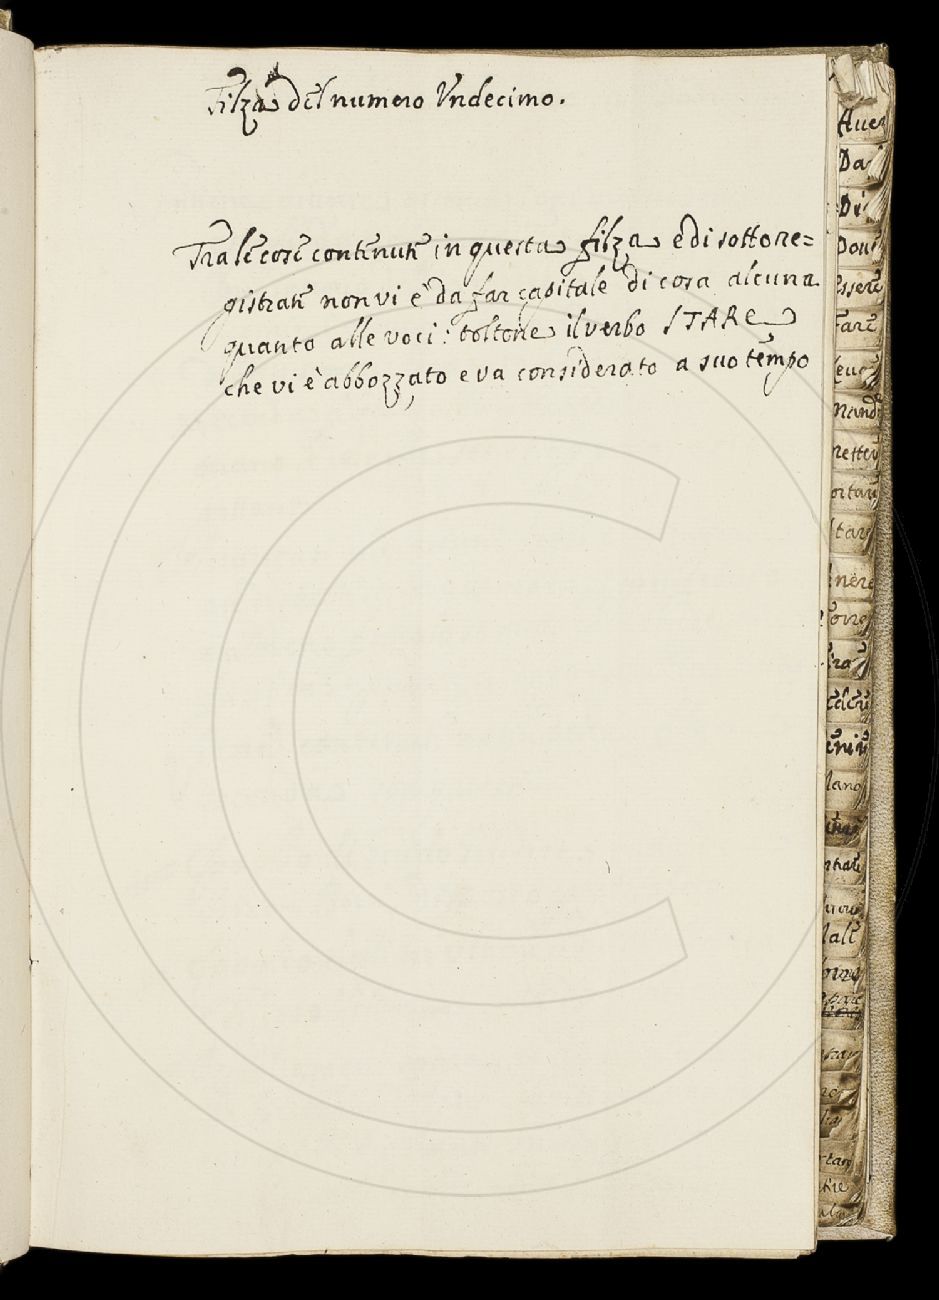 Filza del numero Vndecimo.
Tra le cose contenute in questa filza e di sotto re=
gistrate non vi è da far capitale di cosa alcuna
quanto alle voci: toltone il verbo STARE
che vi è abbozzato e va considerato a suo tempo
Auer
Da
Di
Doue
Essere
Fare
Leua
Mand
metter
ortar
Stare
nere
orre
tra
edere
enir
lano
ntrar
ale
tar